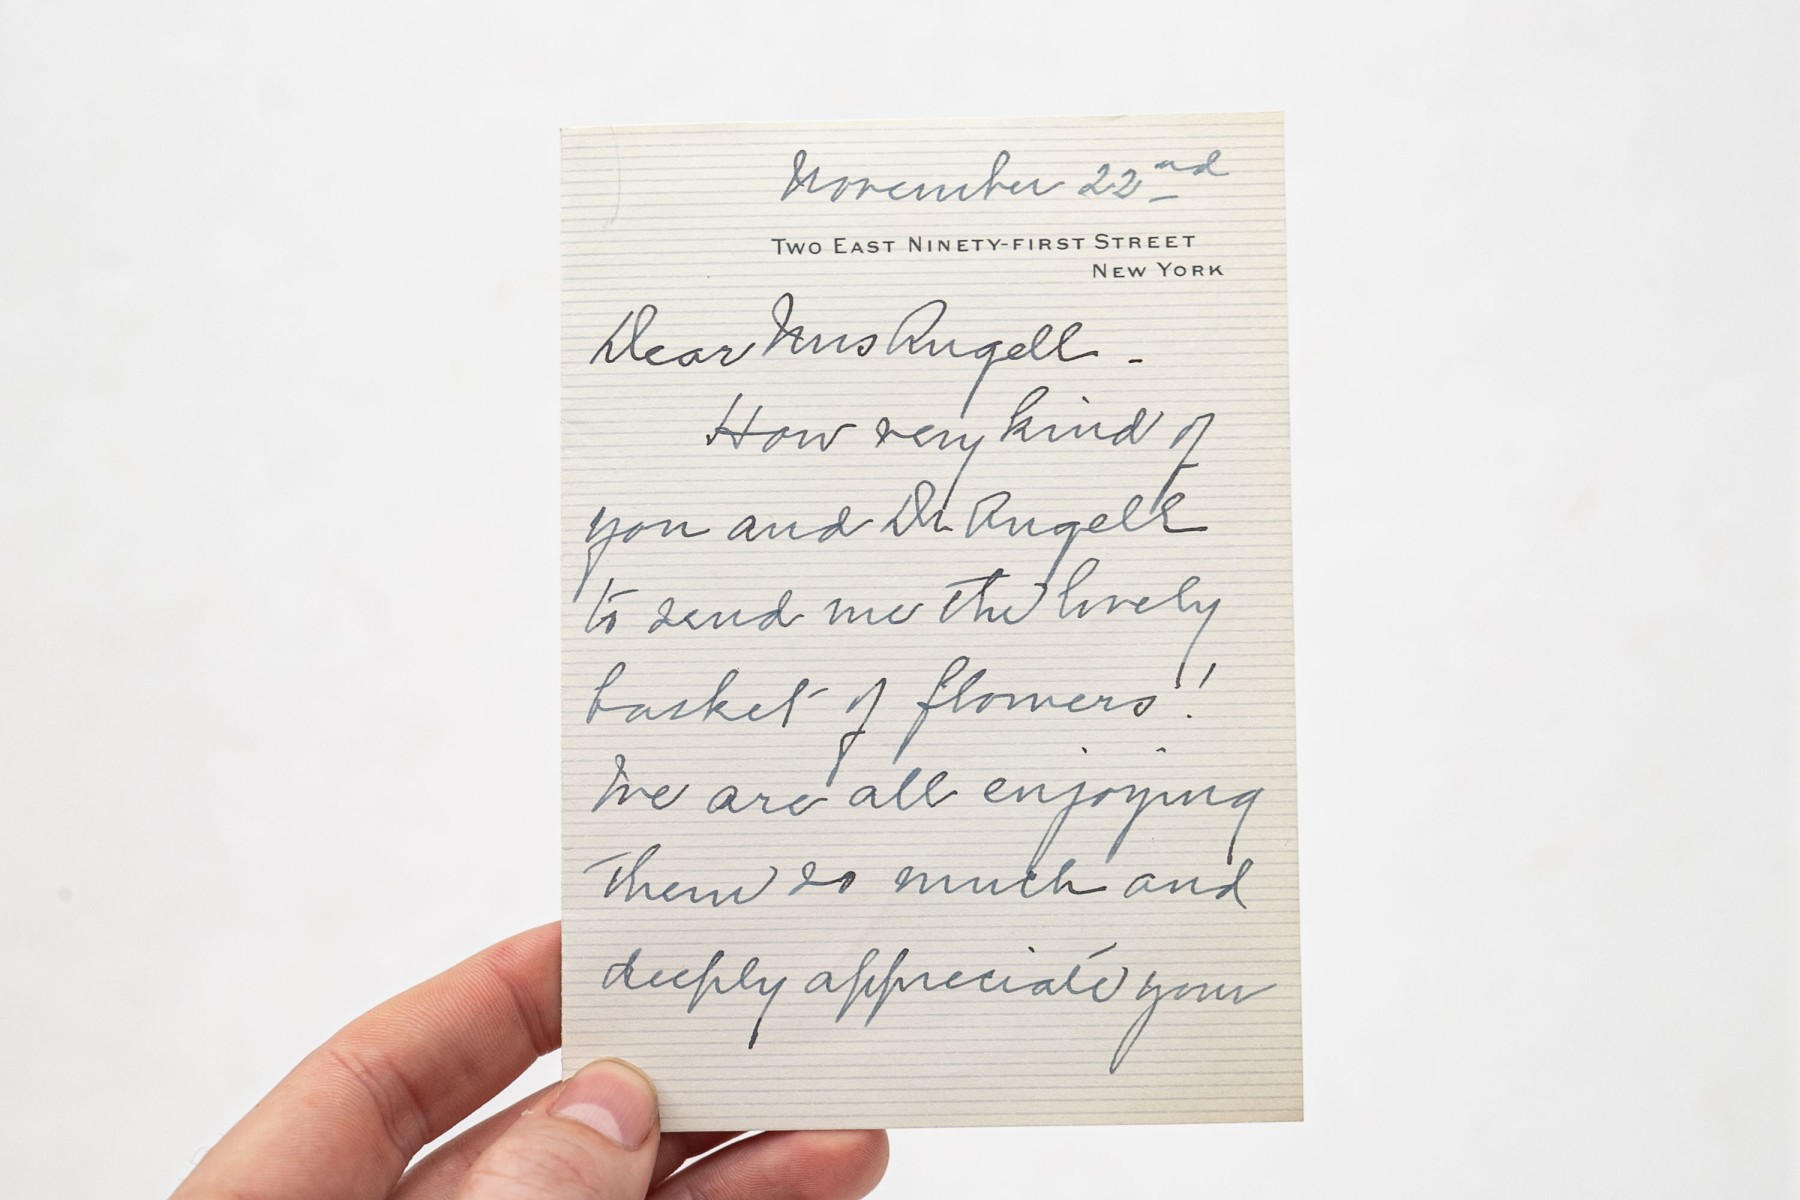 November 22nd
TWO EAST NINETY-FIRST STREET
NEW YORK
Dear Mrs Angell -
How very kind of
you and Dr Angell
to send me the lovely
basket of flowers!
We are all enjoying
them so much and
deeply appreciate your